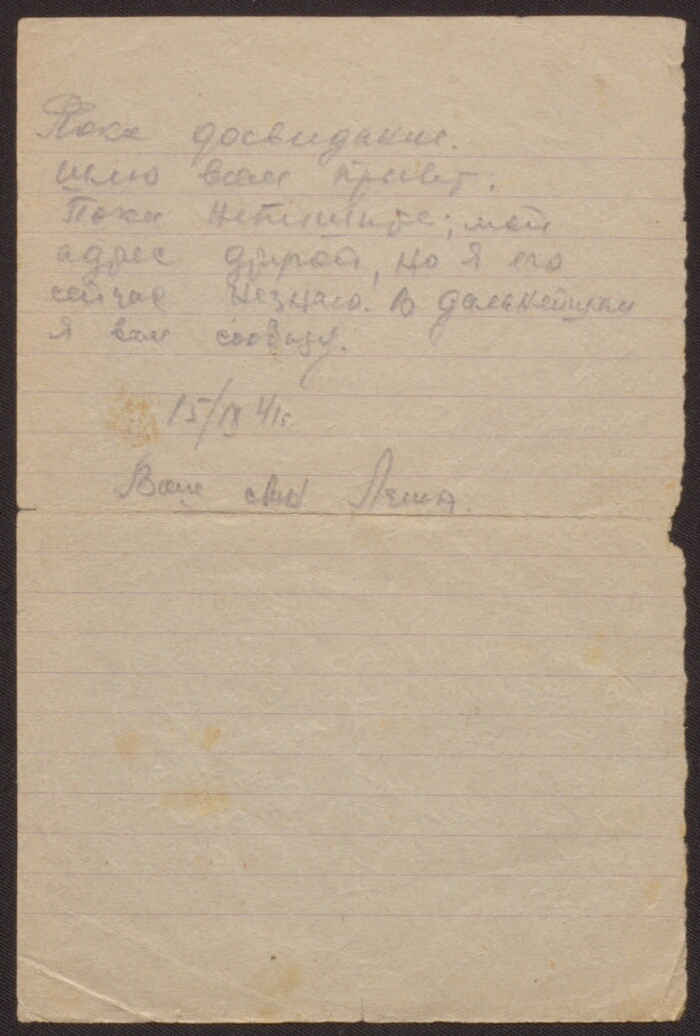 Пока досвидание.
шлю всем привет.
Пока непишите; мой
адрес другой, но я его
сейчас незнаю. В дальнейшем
я вам сообщу.
15/IX 41г.
Ваш сын Леша.